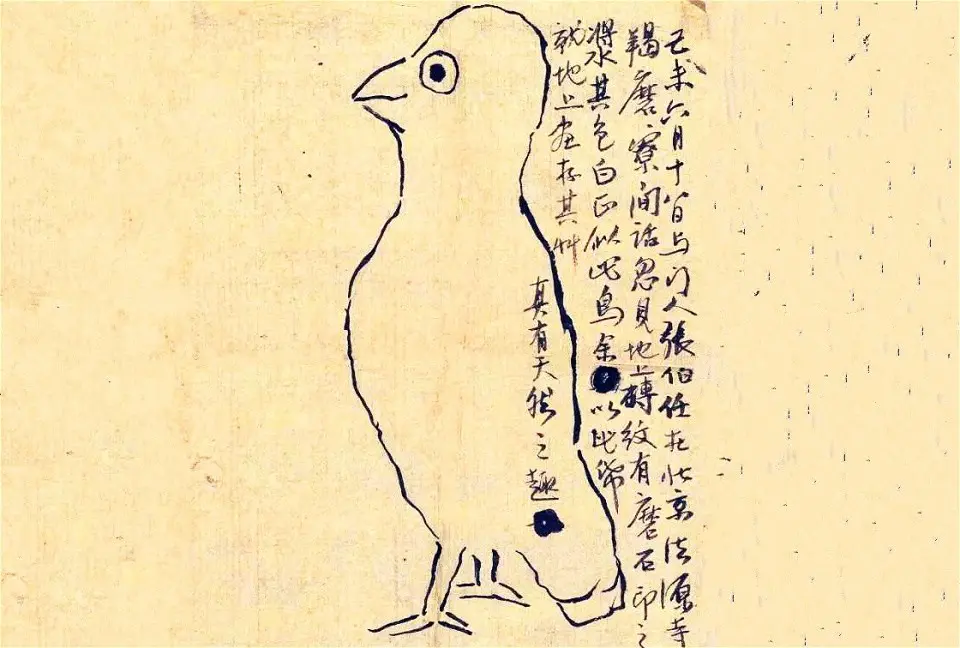 己未六月十八日与门人張伯任在北京法源寺
羯磨寮间話忽見地上磚紋有磨石印之
漿水其色白正似此鳥余以此帋
就地上画存其艸
真有天然之趣